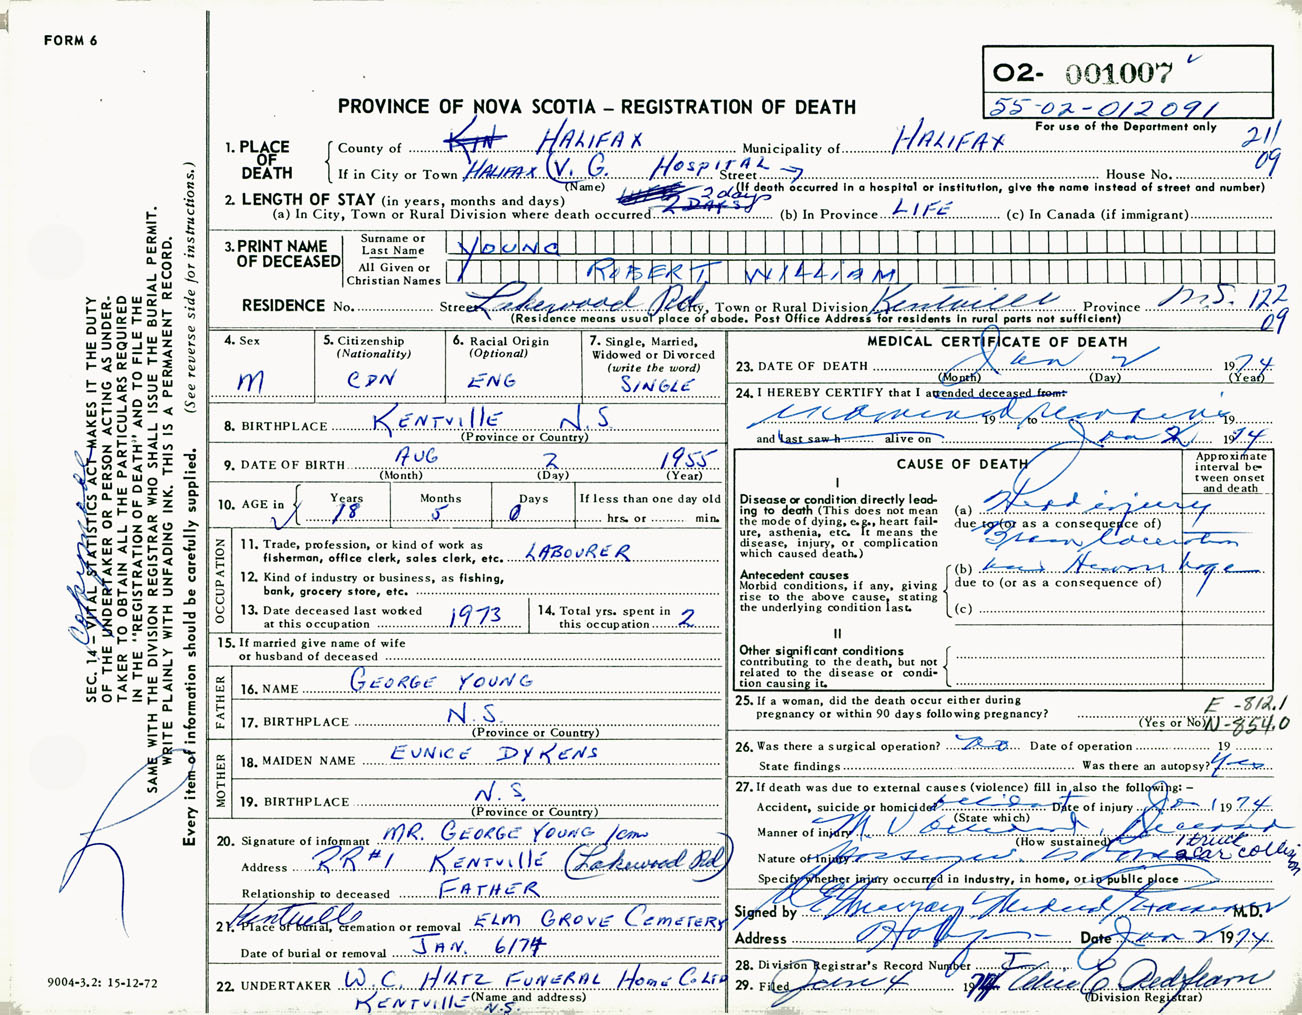 FORM 6
O2- 001007
55-02-012091
For use of the Department only
PROVINCE OF NOVA SCOTIA – REGISTRATION OF DEATH
211
09
1. PLACE OF DEATH
County of HALIFAX Municipality of HALIFAX
If in City or Town HALIFAX (V. G. HOSPITAL Street House No.
(Name) (If death occurred in a hospital or institution, give the name instead of street and number)
2. LENGTH OF STAY (in years, months and days) 2 days
(a) In City, Town or Rural Division where death occurred 2 DAYS (b) In Province LIFE (c) In Canada (if immigrant)
3. PRINT NAME OF DECEASED
Surname or Last Name YOUNG
All Given or Christian Names ROBERT WILLIAM
RESIDENCE No. Street Lakewood Rd City, Town or Rural Division Kentville Province N.S. 122
09
(Residence means usual place of abode. Post Office Address for residents in rural parts not sufficient)
4. Sex
M
5. Citizenship
(Nationality)
CDN
6. Racial Origin
(Optional)
ENG
7. Single, Married, Widowed or Divorced
(write the word)
SINGLE
8. BIRTHPLACE KENTVILLE N.S.
(Province or Country)
9. DATE OF BIRTH AUG 2 1955
(Month) (Day) (Year)
10. AGE in
Years Months Days If less than one day old
18 5 0 hrs. or min.
OCCUPATION
11. Trade, profession, or kind of work as fisherman, office clerk, sales clerk, etc. LABOURER
12. Kind of industry or business, as fishing, bank, grocery store, etc.
13. Date deceased last worked at this occupation 1973
14. Total yrs. spent in this occupation 2
15. If married give name of wife or husband of deceased
FATHER
16. NAME GEORGE YOUNG
17. BIRTHPLACE N.S.
(Province or Country)
MOTHER
18. MAIDEN NAME EUNICE DYKENS
19. BIRTHPLACE N.S.
(Province or Country)
20. Signature of informant MR. GEORGE YOUNG
Address RR#1 KENTVILLE (Lakewood Rd)
Relationship to deceased FATHER
Kentville
21. Place of burial, cremation or removal ELM GROVE CEMETERY
Date of burial or removal JAN. 6/74
22. UNDERTAKER W.C. HILTZ FUNERAL HOME CO LTD
KENTVILLE (Name and address)
N.S.
MEDICAL CERTIFICATE OF DEATH
23. DATE OF DEATH Jan 2 1974
(Month) (Day) (Year)
24. I HEREBY CERTIFY that I attended deceased from:
19 to 19
and last saw h alive on Jan 2 1974
CAUSE OF DEATH
Approximate interval between onset and death
I
Disease or condition directly leading to death (This does not mean the mode of dying, e.g., heart failure, asthenia, etc. It means the disease, injury, or complication which caused death.)
(a) Head injury
due to (or as a consequence of)
Brain laceration
Antecedent causes
Morbid conditions, if any, giving rise to the above cause, stating the underlying condition last.
(b) and Hemorrhage
due to (or as a consequence of)
(c)
II
Other significant conditions
contributing to the death, but not related to the disease or condition causing it.
25. If a woman, did the death occur either during pregnancy or within 90 days following pregnancy?
(Yes or No)
E -812.1
N-854.0
26. Was there a surgical operation? no Date of operation 19
State findings Was there an autopsy? Yes
27. If death was due to external causes (violence) fill in also the following: –
Accident, suicide or homicide accident Date of injury Jan 1 1974
(State which)
Manner of injury M V accident, Deceased
(How sustained)
Nature of Injury passenger
Specify whether injury occurred in industry, in home, or in public place
Signed by Medical Examiner M.D.
Address Date Jan 2 1974
28. Division Registrar's Record Number
29. Filed Jan 4 1974
(Division Registrar)
SEC. 14 – VITAL STATISTICS ACT MAKES IT THE DUTY
OF THE UNDERTAKER OR PERSON ACTING AS UNDER-
TAKER TO OBTAIN ALL THE PARTICULARS REQUIRED
IN THE "REGISTRATION OF DEATH" AND TO FILE THE
SAME WITH THE DIVISION REGISTRAR WHO SHALL ISSUE THE BURIAL PERMIT.
WRITE PLAINLY WITH UNFADING INK. THIS IS A PERMANENT RECORD.
Every item of information should be carefully supplied. (See reverse side for instructions.)
9004-3.2: 15-12-72